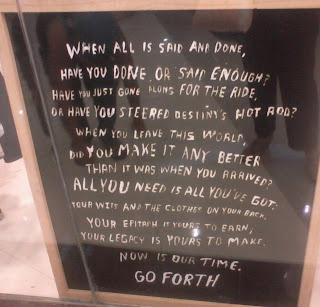 WHEN ALL IS SAID AND DONE,
HAVE YOU DONE OR SAID ENOUGH?
HAVE YOU JUST GONE ALONG FOR THE RIDE,
OR HAVE YOU STEERED DESTINY'S HOT ROD?
WHEN YOU LEAVE THIS WORLD,
DID YOU MAKE IT ANY BETTER
THAN IT WAS WHEN YOU ARRIVED?
ALL YOU NEED IS ALL YOU'VE GOT:
YOUR WITS AND THE CLOTHES ON YOUR BACK.
YOUR EPITAPH IS YOURS TO EARN,
YOUR LEGACY IS YOURS TO MAKE.
NOW IS OUR TIME.
GO FORTH